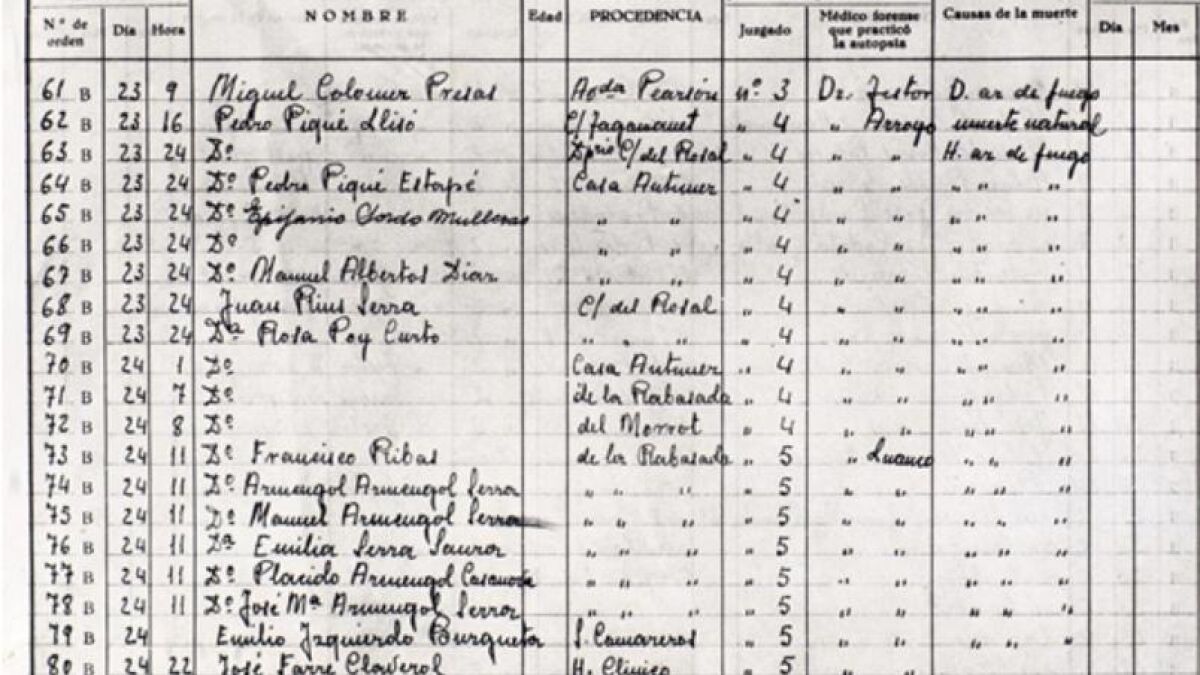 Nº de orden Día Hora NOMBRE Edad PROCEDENCIA Juzgado Médico forense que practicó la autopsia Causas de la muerte Día Mes
61 B 23 9 Miguel Colomer Presas Avda Pearson nº 3 Dr. D. ar de fuego
62 B 23 16 Pedro Piqué Llisó C/ " 4 " Arroyo muerte natural
63 B 23 24 Dº Dprio C/ del Rosal " 4 " " H. ar de fuego
64 B 23 24 Dº Pedro Piqué Estapé Casa Antunez " 4 " " " " "
65 B 23 24 Dº Epifanio " " " 4 " " " " "
66 B 23 24 Dº " " " 4 " " " " "
67 B 23 24 Dº Manuel Albertos Diaz " " " 4 " " " " "
68 B 23 24 Juan Rius Serra C/ del Rosal " 4 " " " " "
69 B 23 24 Dª Rosa Poy Curto " " " " 4 " " " " "
70 B 24 1 Dº Casa Antunez " 4 " " " " "
71 B 24 7 Dº de la Rabasada " 4 " " " " "
72 B 24 8 Dº del Morrot " 4 " " " " "
73 B 24 11 Dº Francisco Ribas de la Rabasada " 5 " " " "
74 B 24 11 Dº Armengol Armengol Serra " " " 5 " " " " "
75 B 24 11 Dº Manuel Armengol Serra " " " 5 " " " " "
76 B 24 11 Dª Emilia Serra Saurar " " " 5 " " " " "
77 B 24 11 Dº Placido Armengol Casanova " " " 5 " " " " "
78 B 24 11 Dº José Mª Armengol Serra " " " 5 " " " " "
79 B 24 Emilio Izquierdo Burgueta S. Camareros " 5 " " " " "
80 B 24 22 José Farré Claverol H. Clinico " 5 " " " "